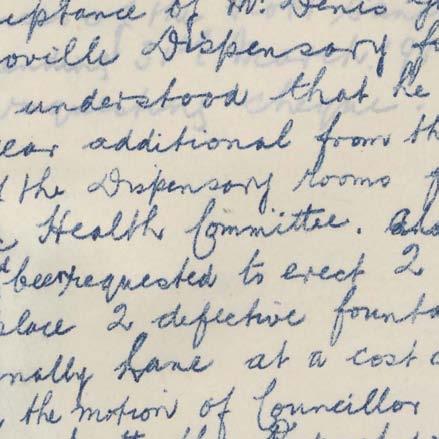 eptance of Mr. Denis
oville Dispensary f
understood that he
ear additional from th
d the Dispensary rooms f
Health Committee. and
been requested to erect 2
place 2 defective founta
nally Lane at a cost o
, the motion of Councillor